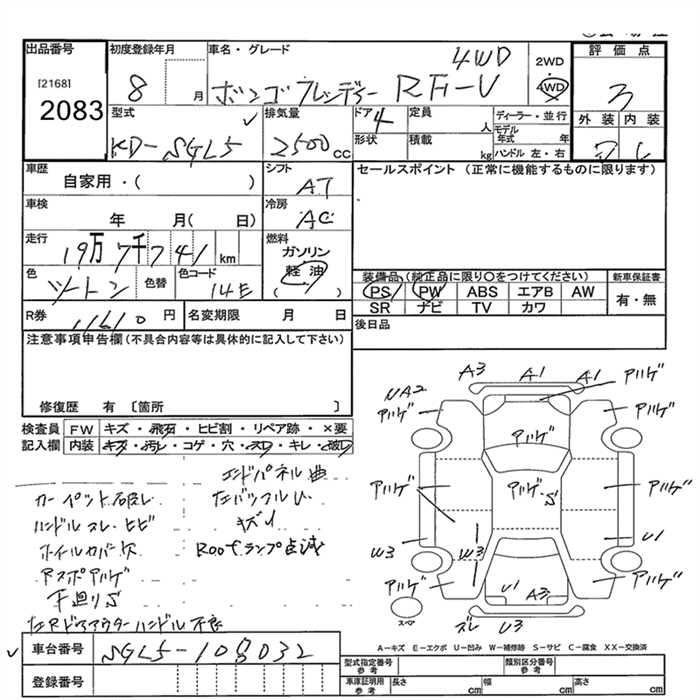 出品番号
[2168]
2083
初度登録年月
8 月
車名・グレード
4WD
ボンゴ フレンディー RF-V
2WD
4WD
評価点
3
外装 内装
型式
KD-SGL5
排気量
2500 cc
ドア
4
形状
定員
人
積載
kg
ディーラー・並行
モデル年式 年
ハンドル 左・右
車歴
自家用・( )
シフト
AT
セールスポイント (正常に機能するものに限ります)
車検
年 月( 日)
冷房
AC
走行
19万 7千 7 4 1 km
燃料
ガソリン
軽油
( )
色
ツートン
色替
色コード
14E
装備品 (純正品に限り○をつけてください)
PS PW ABS エアB AW
SR ナビ TV カワ
新車保証書
有・無
R券
11610 円
名変期限 月 日
後日品
注意事項申告欄(不具合内容等は具体的に記入して下さい)
修復歴 有 〔箇所 〕
検査員記入欄
FW キズ・飛石・ヒビ割・リペア跡・×要
内装 キズ・汚レ・コゲ・穴・スレ・キレ・破レ
エンドパネル曲
カーペット破レ
ハンドルスレ・ヒビ
キズ1
ホイルカバー欠
Roofランプ点滅
Rスポアルゲ
下廻りS
左Rドアアウターハンドル不良
A3
A1
A1
アルゲ
UA2
アルゲ
アルゲ
アルゲ
アルゲ・S
アルゲ
W3
W3
U1
アルゲ
U1
A3
アルゲ
ズレ
U3
スペア
A-キズ E-エクボ U-凹み W-補修跡 S-サビ C-腐食 XX-交換済
車台番号
SGL5-108032
登録番号
型式指定番号 参考
類別区分番号 参考
車庫証明用 参考
長さ cm
幅 cm
高さ cm